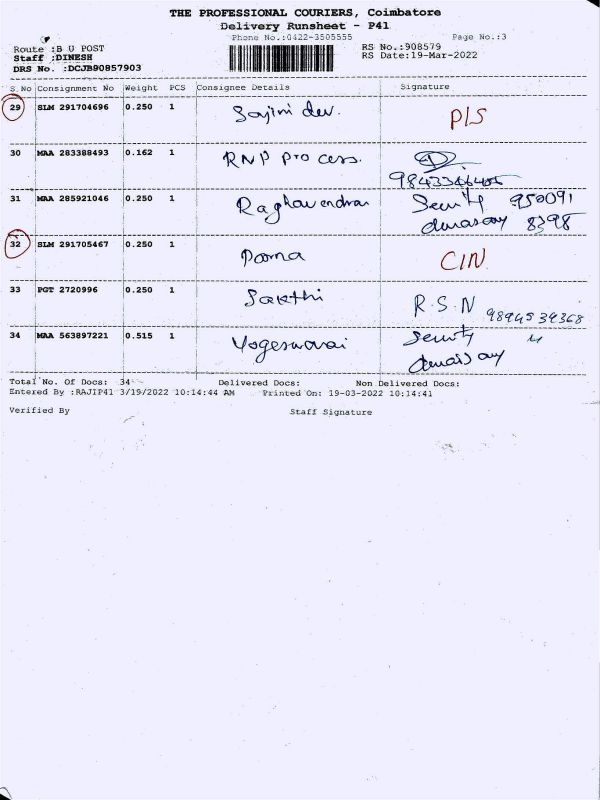 THE PROFESSIONAL COURIERS, Coimbatore
Delivery Runsheet - P41
Phone No.:0422-3505555 Page No.:3
Route :B U POST RS No.:908579
Staff :DINESH RS Date:19-Mar-2022
DRS No. :DCJB90857903
S.No Consignment No Weight PCS Consignee Details Signature
29 SLM 291704696 0.250 1 Sajini dev. P/S
30 MAA 283388493 0.162 1 RNP Process.
31 MAA 285921046 0.250 1 Raghavendran Security 950091
8398
32 SLM 291705467 0.250 1 Poorna C/N
33 PGT 2720996 0.250 1 Sakthi R.S.N
34 MAA 563897221 0.515 1 Yogeswarai Security
Total No. Of Docs: 34 Delivered Docs: Non Delivered Docs:
Entered By :RAJIP41 3/19/2022 10:14:44 AM Printed On: 19-03-2022 10:14:41
Verified By Staff Signature